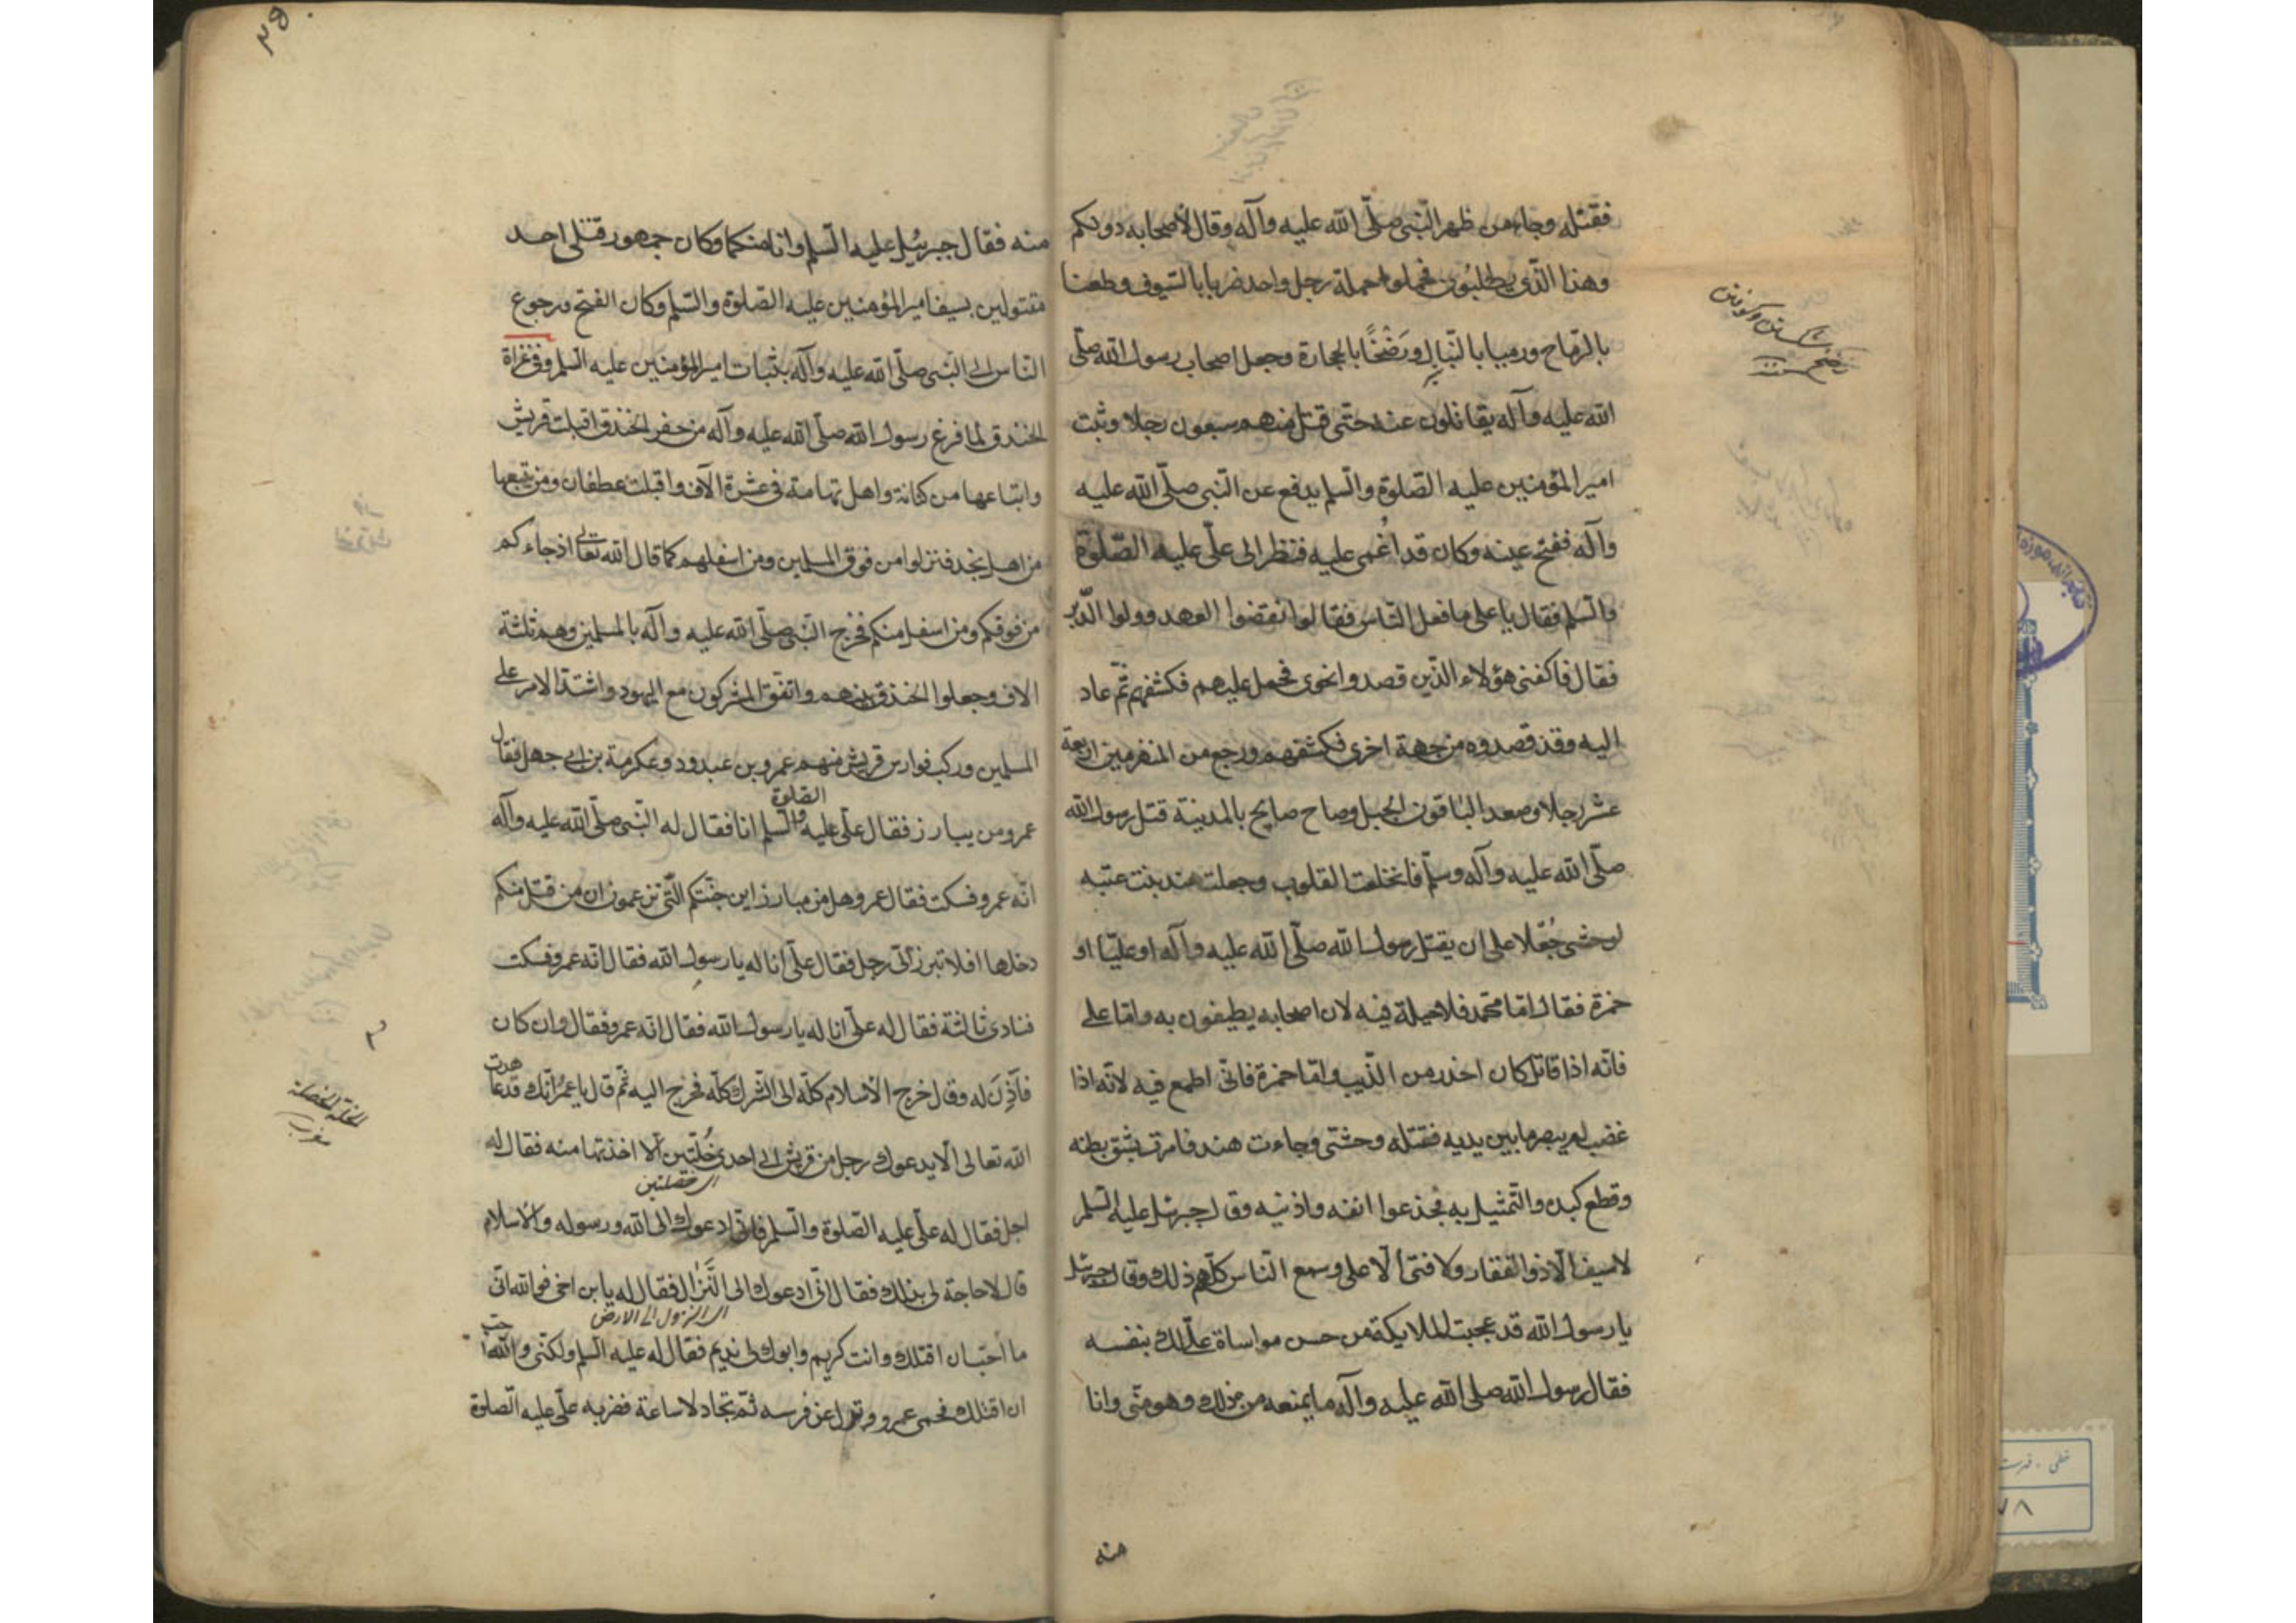 فقتله وجاء من ظهر النّبى صلّى الله عليه وآله وقال لأصحابه دونكم
وهذا الّذى تطلبون فحملوا حملة رجل واحد ضربا بالسّيوف وطعنا
بالرّماح ورميا بالنّبال ورَضْخًا بالحجارة وجعل اصحاب رسول الله صلّى
الله عليه وآله يقاتلون عنه حتّى قتل منهم سبعون رجلا وثبت
امير المؤمنين عليه الصّلوة والسّلم يدفع عن النّبى صلّى الله عليه
وآله ففتح عينه وكان قد اُغمى عليه فنظر الى علّى عليه الصّلوة
والسّلم فقال يا على ما فعل النّاس فقالوا نقضوا العهد وولوا الدّبر
فقال فاكفنى هؤلاء الّذين قصدوا نحوى فحمل عليهم فكشفهم ثمّ عاد
اليه وقد قصدوه من جهة اخرى فكشفهم ورجع من المنهزمين اربعة
عشر رجلا وصعد الباقون الجبل وصاح صايح بالمدينة قتل رسول الله
صلّى الله عليه وآله وسلّم فانخلعت القلوب وجعلت هند بنت عتبه
لوحشى جُعْلا على ان يقتل رسول الله صلّى الله عليه وآله او عليّا او
حمزة فقال امّا محمّد فلا حيلة فيه لان اصحابه يطيفون به وامّا على
فانّه اذا قاتل كان احذر من الذّيب وامّا حمزة فانّى اطمع فيه لانّه اذا
غضب لم يبصر ما بين يديه فقتله وحشّى وجاءت هند فامرت بشق بطنه
وقطع كبده والتّمثيل به فجذعوا انفه واذنيه وقال جبرئيل عليه السّلم
لا سيف الّا ذو الفقار ولا فتى الّا على وسمع النّاس كلّهم ذلك وقال جبرئيل
يا رسول الله قد عجبت الملايكة من حسن مواساة علّى لك بنفسه
فقال رسول الله صلى الله عليه وآله ما يمنعه من ذلك وهو منّى وانا
منه
٢٥
منه فقال جبرئيل عليه السّلم وانا منكما وكان جمهور قتلى احد
مقتولين بسيف امير المؤمنين عليه الصّلوة والسّلم وكان الفتح ورجوع
النّاس الى النّبى صلّى الله عليه وآله بثبات امير المؤمنين عليه السّلم وفى غزاة
الخندق لما فرغ رسول الله صلّى الله عليه وآله من حفر الخندق اقبلت قريش
واتباعها من كنانة واهل تهامة فى عشرة الآف واقبلت عطفان ومن تبعها
من اهل نجد فنزلوا من فوق المسلمين ومن اسفلهم كما قال الله تعالى اذ جاءكم
من فوقكم ومن اسفل منكم فخرج النّبى صلّى الله عليه وآله بالمسلمين وهم ثلثة
الاف وجعلوا الخندق بينهم واتّفق المشركون مع اليهود واشتدّ الامر على
المسلمين وركب فوارس قريش منهم عمرو بن عبدود وعكرمة بن ابى جهل فقال
عمرو من يبارز فقال علّى عليه الصّلوة والسّلم انا فقال له النّبى صلّى الله عليه وآله
انّه عمرو فسكت فقال عمرو هل من مبارز اين جنّتكم الّتى تزعمون ان من قتل منكم
دخلها افلا تبرز الىّ رجل فقال علّى انا له يا رسول الله فقال انّه عمرو فسكت
فنادى ثالثة فقال له علّى انا له يا رسول الله فقال انّه عمرو فقال وان كان
فأذِنَ له وقال خرج الاسلام كلّه الى الشّرك كلّه فخرج اليه ثمّ قال يا عمرُ انّك قد عاهدت
الله تعالى الّا يدعوك رجل من قريش الى احدى خُلّتين الّا اخذتها منه فقال له
اى خصلتين
اجل فقال له علّى عليه الصّلوة والسّلم فانّى ادعوك الى الله ورسوله والاسلام
قال لا حاجة لى بذلك فقال انّى ادعوك الى النِّزال فقال له يا بن اخى فو الله انّى
اى النزول الى الارض
ما احبّ ان اقتلك وانت كريم وابوك لى نديم فقال له عليه السّلم ولكنّى والله احبّ
ان اقتلك فحمى عمرو ونزل عن فرسه ثمّ تجادلا ساعة فضربه علّى عليه الصّلوة
الخلة الخصلة
خطى - فهرست
٧٨